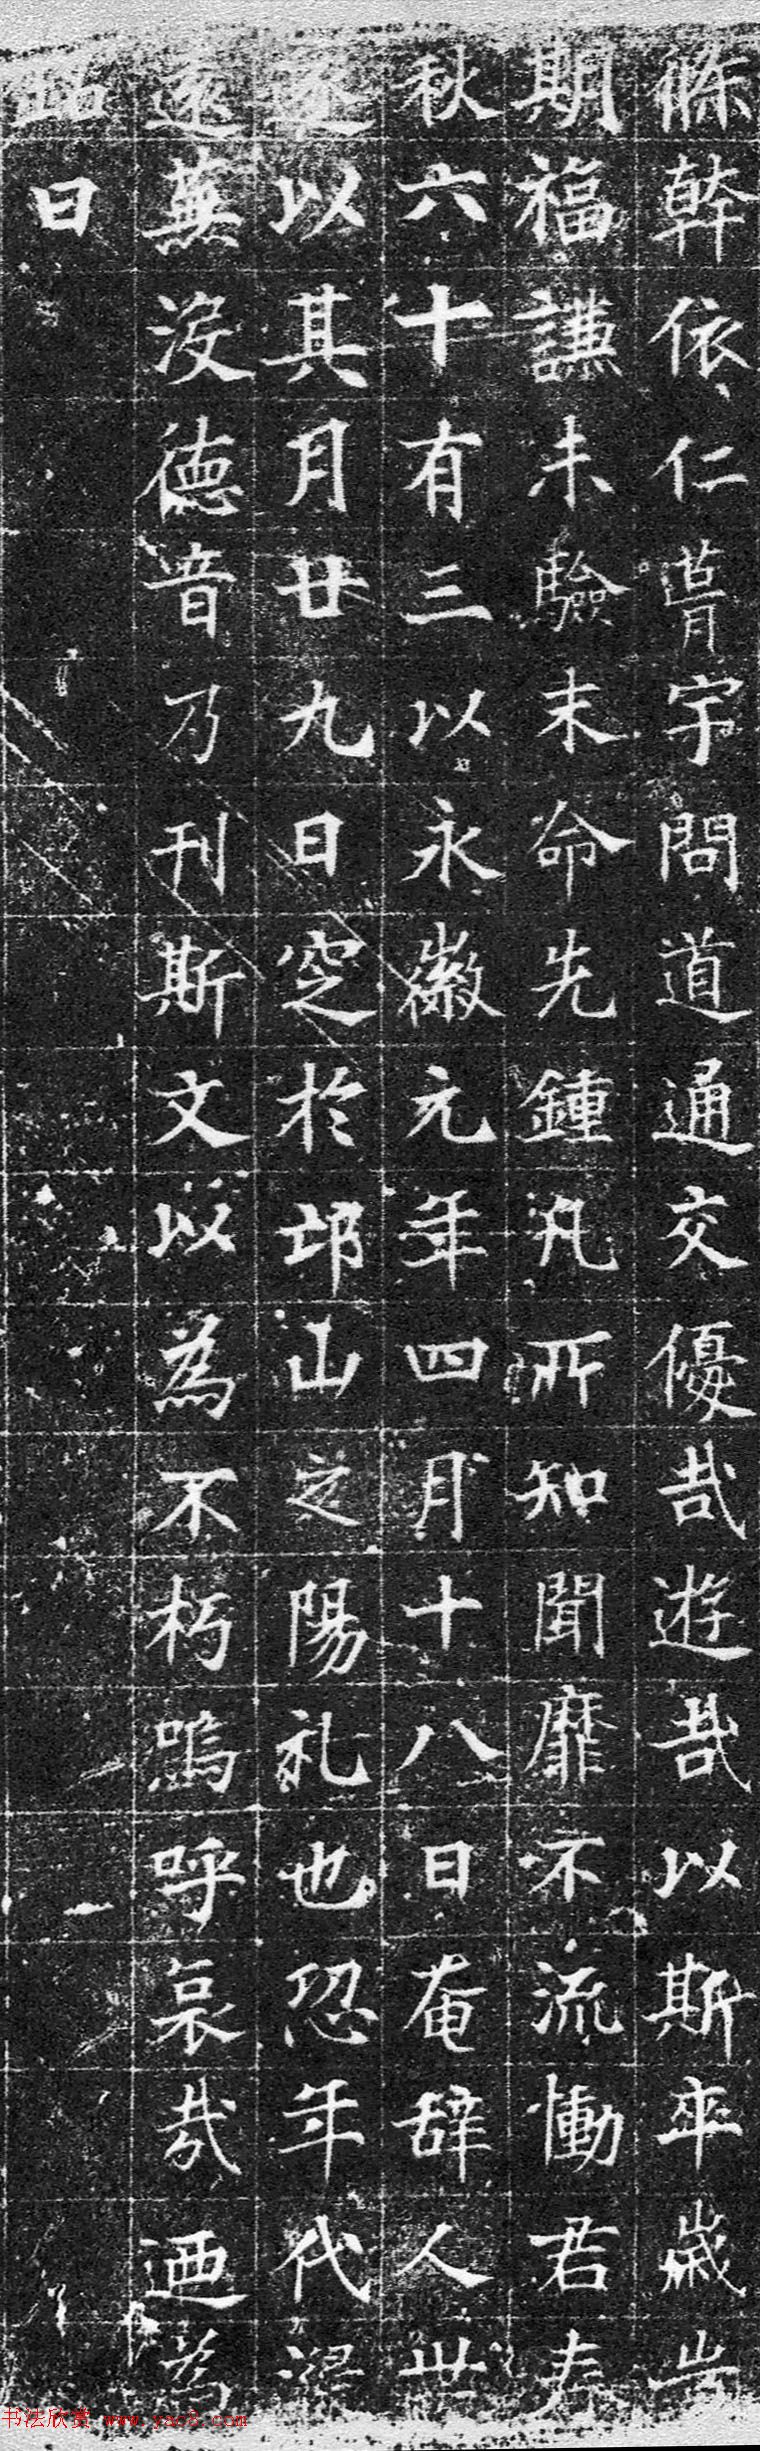 幹依仁肩宇問道通交優哉遊哉以斯卒歲豈
期福謙未驗末命先鍾凡所知聞靡不流慟君春
秋六十有三以永徽元年四月十八日奄辞人世
遂以其月廿九日窆於邙山之陽礼也恐年代
遠蕪没德音乃刊斯文以為不朽嗚呼哀哉迺為
銘曰
书法欣赏 www.yac8.com